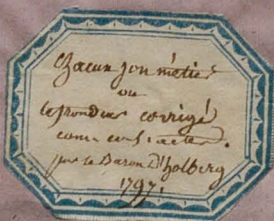 Chacun son métier
ou
corrigé
com. en 3 actes.
par le Baron D'holberg
1797.